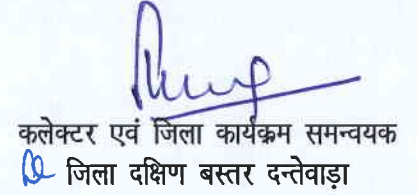 कलेक्टर एवं जिला कार्यक्रम समन्वयक
जिला दक्षिण बस्तर दन्तेवाड़ा